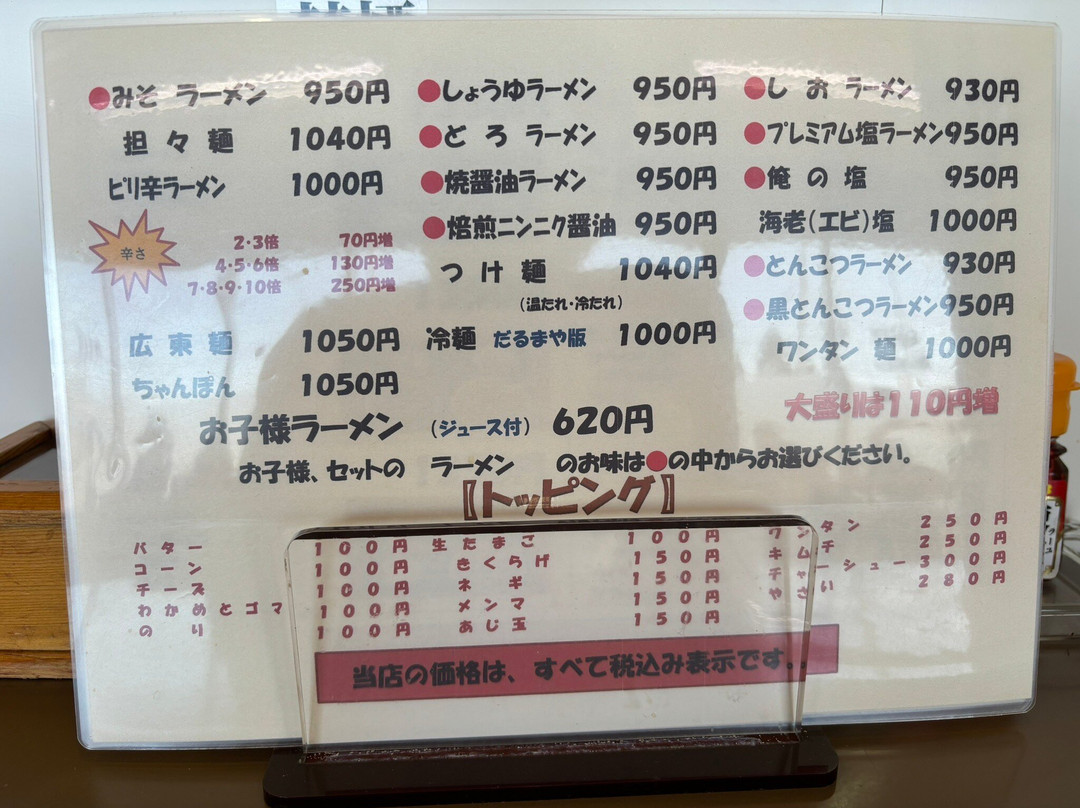 ●みそ ラーメン 950円
担々麺 1040円
ピリ辛ラーメン 1000円
辛さ
2・3倍 70円増
4・5・6倍 130円増
7・8・9・10倍 250円増
広東麺 1050円
ちゃんぽん 1050円
●しょうゆラーメン 950円
●とろ ラーメン 950円
●焼醤油ラーメン 950円
●焙煎ニンニク醤油 950円
つけ麺 1040円
(温たれ・冷たれ)
冷麺 だるまや版 1000円
●しお ラーメン 930円
●プレミアム塩ラーメン950円
●俺の塩 950円
海老(エビ)塩 1000円
●とんこつラーメン 930円
●黒とんこつラーメン950円
ワンタン 麺 1000円
大盛りは110円増
お子様ラーメン (ジュース付) 620円
お子様、セットの ラーメン のお味は●の中からお選びください。
〖トッピング〗
バター 100円
コーン 100円
チーズ 100円
わかめとゴマ 100円
のり 100円
生たまご 100円
きくらげ 150円
ネギ 150円
メンマ 150円
あじ玉 150円
ワンタン 250円
キムチ 250円
チャーシュー 300円
やさい 280円
当店の価格は、すべて税込み表示です。